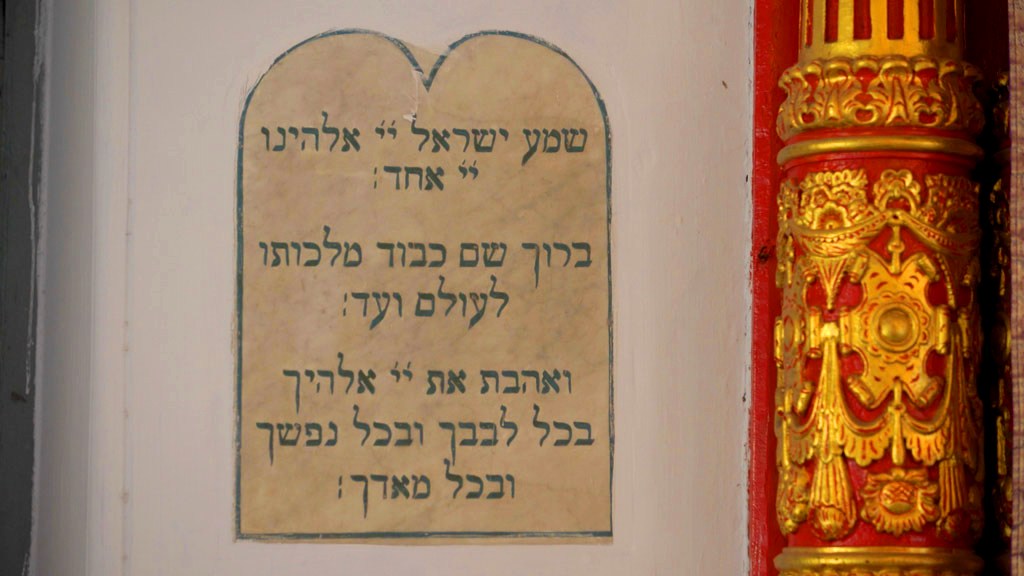 שמע ישראל יי אלהינו
יי אחד:
ברוך שם כבוד מלכותו
לעולם ועד:
ואהבת את יי אלהיך
בכל לבבך ובכל נפשך
ובכל מאדך: